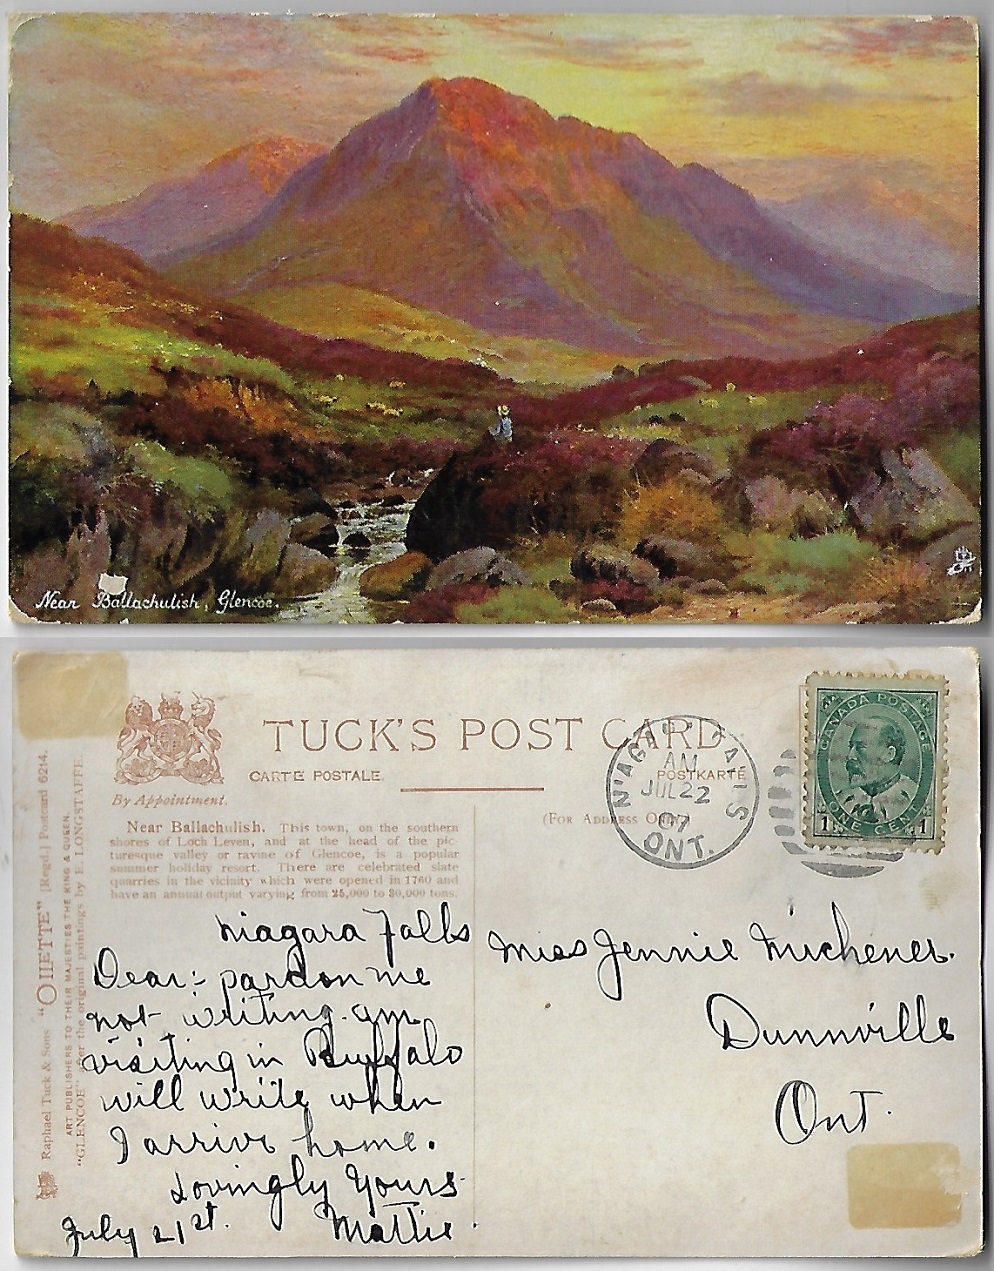 Near Ballachulish, Glencoe.
TUCK'S POST CARD
CARTE POSTALE.
POSTKARTE
By Appointment.
(FOR ADDRESS ONLY)
NIAGARA FALLS
AM
JUL 22
07
ONT.
CANADA POSTAGE
1 ONE CENT 1
Near Ballachulish. This town, on the southern
shores of Loch Leven, and at the head of the pic-
turesque valley or ravine of Glencoe, is a popular
summer holiday resort. There are celebrated slate
quarries in the vicinity which were opened in 1760 and
have an annual output varying from 25,000 to 30,000 tons.
Raphael Tuck & Sons "OILETTE" [Regd.] Postcard 6214.
ART PUBLISHERS TO THEIR MAJESTIES THE KING & QUEEN.
"GLENCOE" after the original paintings by E. LONGSTAFFE.
Niagara Falls
Dear:- pardon me
not writing. am
visiting in Buffalo
will write when
I arrive home.
Lovingly Yours
July 21st. Mattie
Miss Jennie Michener.
Dunnville
Ont.